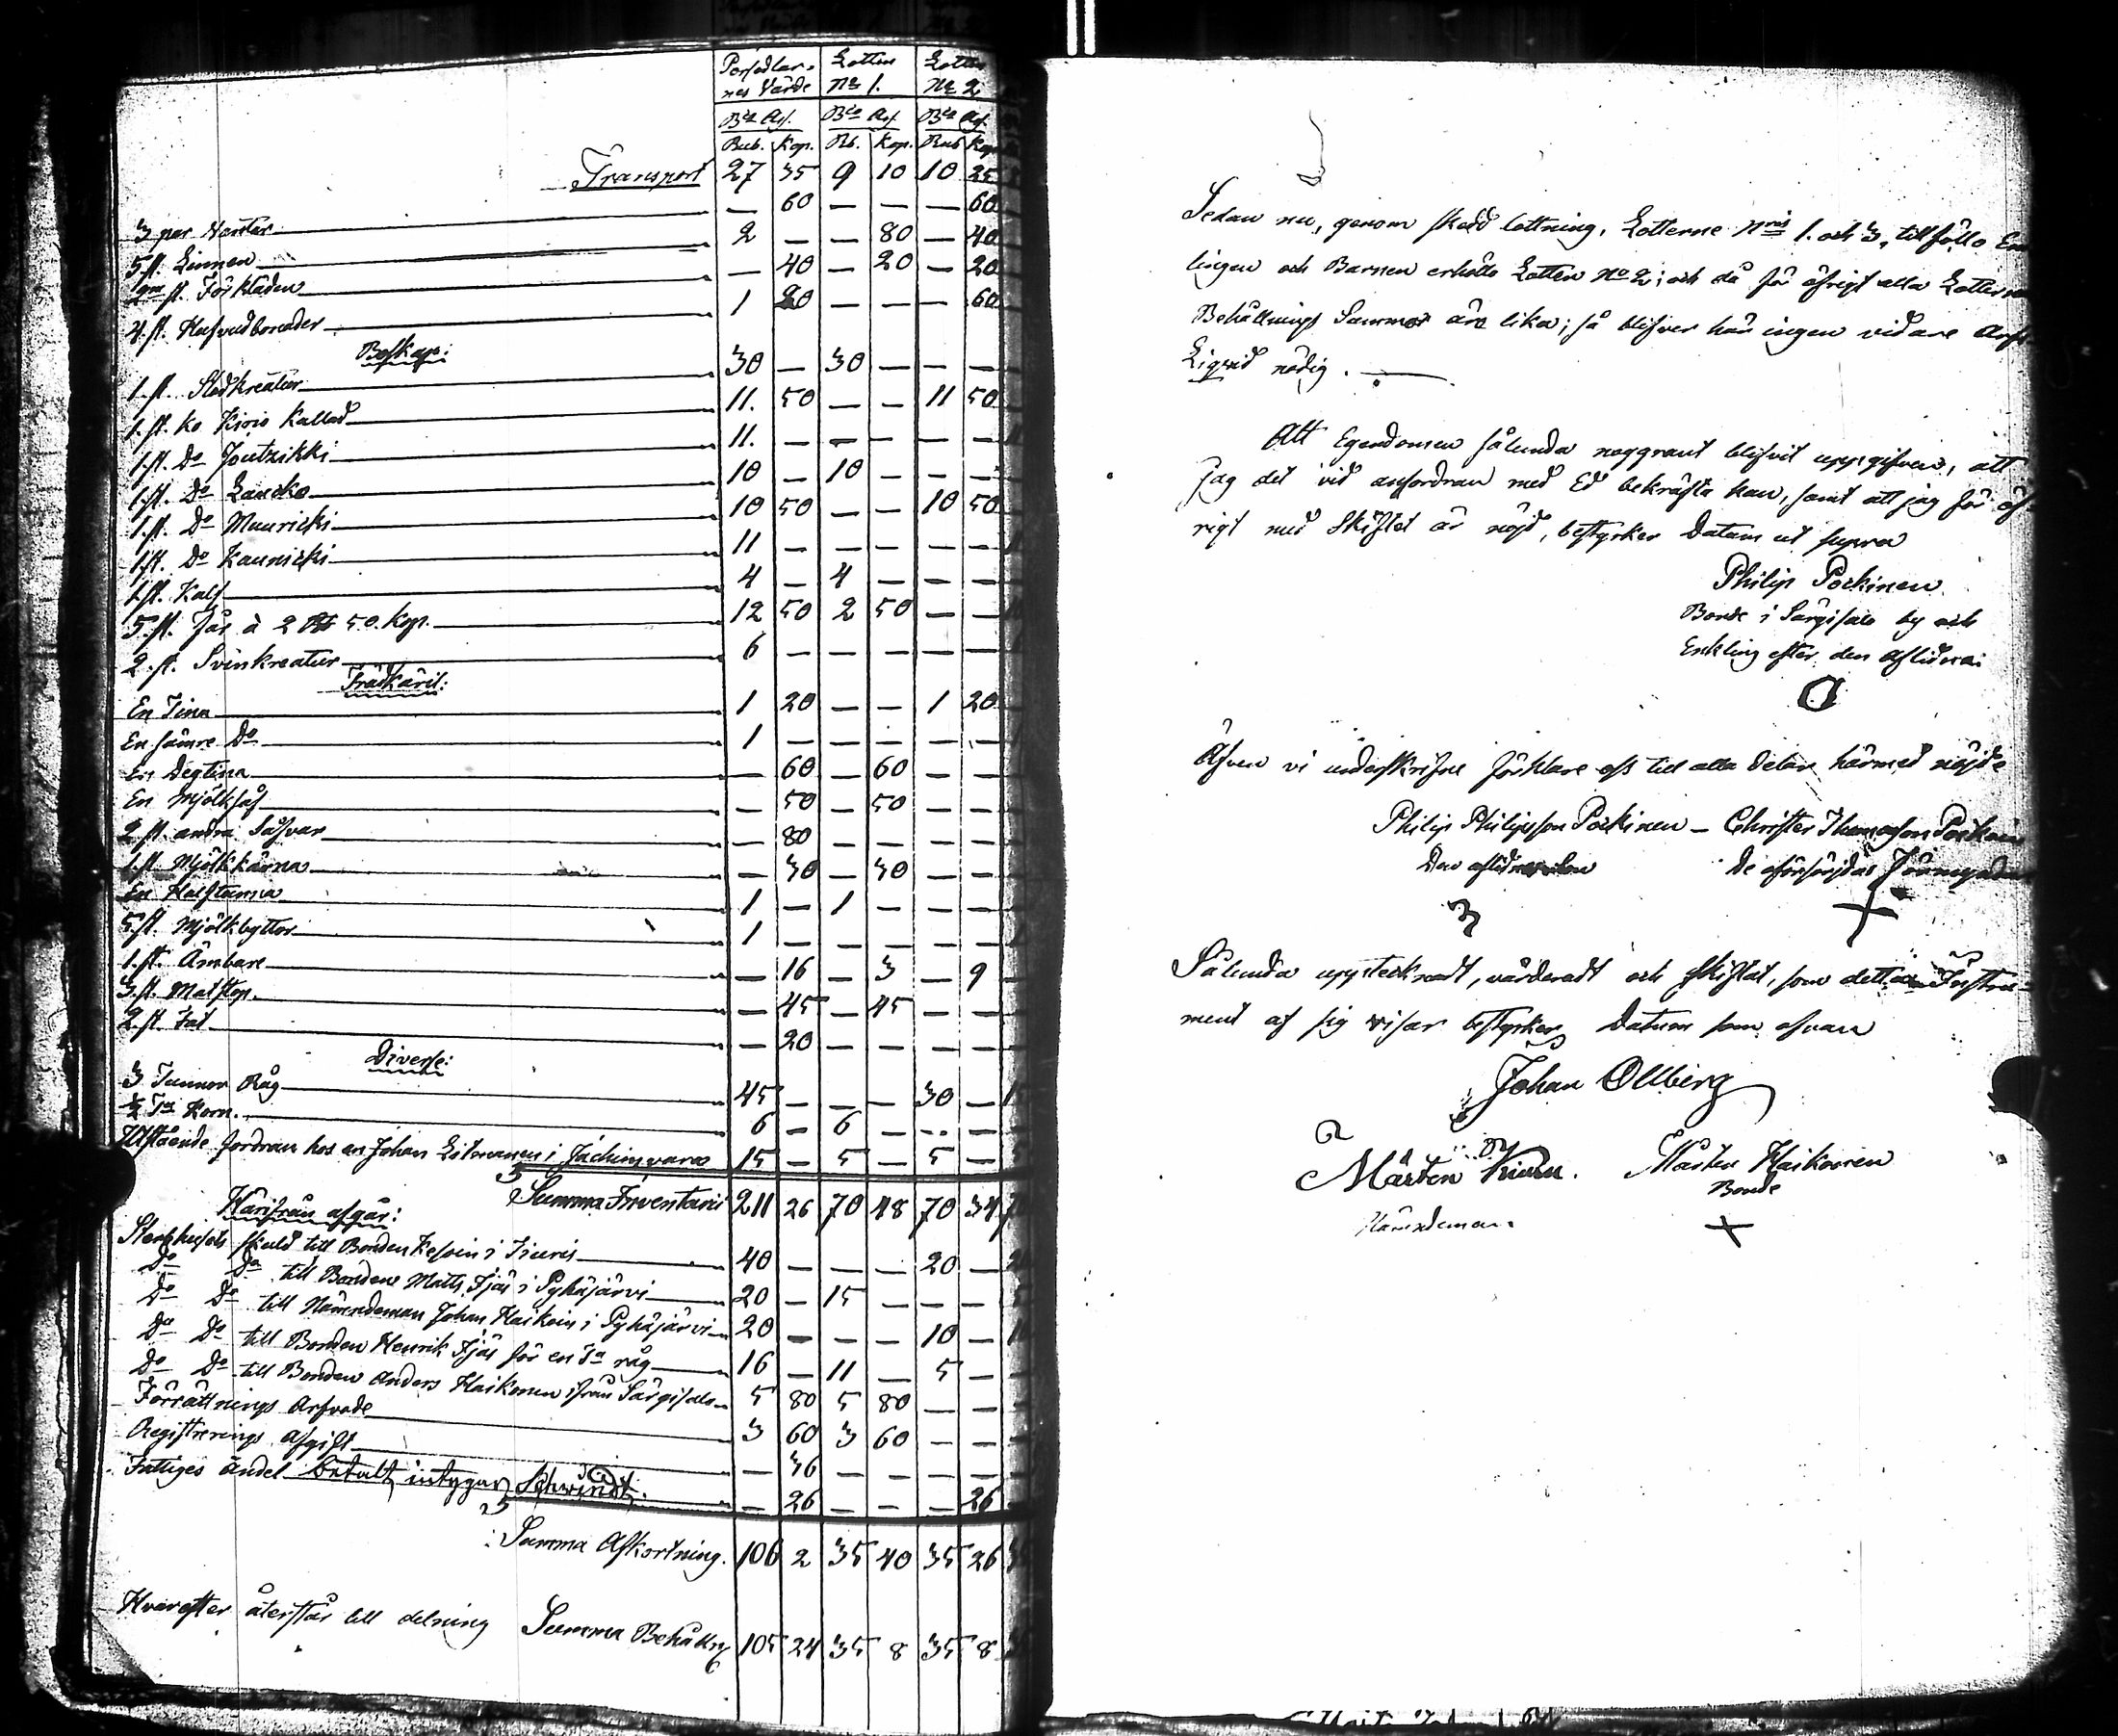 Persedlar- Lotten Lotten
nes Värde No 1. No 2
Bco Ass. Bco Ass. Bco Ass.
Rub. Kop. Rb. Kop. Rub Kop
Transport 27 35 9 10 10 25
3 par Vantar — 60 — — — 60
5 st. Linnen 2 — — 80 — 40
2ne st. Förkläden — 40 — 20 — 20
4 st. Hufvudbonader 1 20 — — — 60
Boskap:
1. st. Stodkreatur 30 — 30 — — —
1. st. Ko Kirio Kallad 11. 50 — — 11 50
1. st. Do Joutzikki 11. — — — — —
1. st. Do Laucko 10 — 10 — — —
1. st. Do Muuricki 10 50 — — 10 50
1. st. Do Kaunicki 11 — — — — —
1. st. Kalf 4 — 4 — — —
5. st. Får à 2 Rb 50. Kop. 12 50 2 50 — —
2. st. Svinkreatur 6 — — — — —
Trädkäril:
En Tina 1 20 — — 1 20
En sämre Do 1 — — — — —
En Degtina — 60 — 60 — —
En Mjölksåf — 50 — 50 — —
2 st. andra Såfvar — 80 — — — —
1. st. Mjölkkärna — 30 — 30 — —
En Halftunna 1 — 1 — — —
5. st. Mjölkbyttor 1 — — — — —
1. st. Ämbare — 16 — 3 — 9
3. st. Matstop. — 45 — 45 — —
2. st. Fat — 20 — — — —
Diverse:
3 Tunnor Råg 45 — — — 30 —
½ Ta Korn. 6 — 6 — — —
Utstående fordran hos en Johan i 15 — 5 — 5 —
Summa Inventarii 211 26 70 48 70 34
Härifrån afgår:
Sterbhusets skuld till Bonden i 40 — — — 20 —
Do Do till Bonden Matts Ijäs i Pyhäjärvi 20 — 15 — — —
Do Do till Nämndeman Johan Haikoin i Pyhäjärvi 20 — — — 10 —
Do Do till Bonden Henrik Ijäs för en Ta råg 16 — 11 — 5 —
Do Do till Bonden Anders Haikonen ifrån Särgisalo 5 80 5 80 — —
Förrättnings Arfvode 3 60 3 60 — —
Registrerings afgift — 36 — — — —
Fattiges andel betalt, intygar Schwindt. — 26 — — — 26
Summa Afkortning. 106 2 35 40 35 26
Hvarefter återstår till delning Summa Behålln 105 24 35 8 35 8
Sedan nu, genom skedd lottning, Lotterne Nris 1. och 3, tillföllo En
lingen och Barnen erhöllo Lotten No 2; och då för öfrigt alla Lotterne
Behållnings Summor äro lika; så blifver här ingen vidare Arfs
Liqvid nödig.
Att Egendomen sålunda noggrant blifvit uppgifven, att
jag det vid anfordran med Ed bekräfta kan, samt att jag för öf-
rigt med Skiftet är nöjd, bestyrker Datum ut supra
Philip Pockinen
Bonde i Särgisalo by och
Enkling efter den aflidna:
Äfven vi underskrifne förklare oss till alla delar härmed nöjde
Philip Philipsson Pockinen — Christer Thomasson
Den aflidnes son De oförsörjdas Förmyndare
3 +
Sålunda upptecknadt, värderadt och skiftat, som detta Instru-
ment af sig visar bestyrker Datum som ofvan
Johan Ollberg
Mårten Mårten Haikonen
Bonde
Nämndeman. +